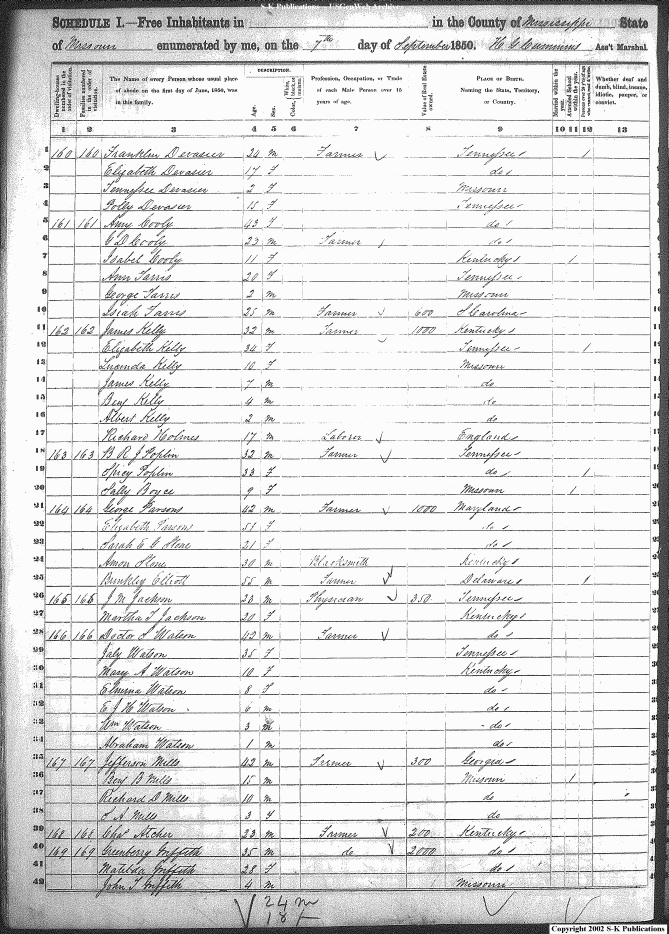 S-K Publications - USGenWeb Archives
SCHEDULE I.—Free Inhabitants in in the County of Mississippi State
of Missouri enumerated by me, on the 7th day of September 1850. Ass't Marshal.
DESCRIPTION.
Dwelling-houses numbered in the order of visitation.
Families numbered in the order of visitation.
The Name of every Person whose usual place of abode on the first day of June, 1850, was in this family.
Age.
Sex.
Color,
Profession, Occupation, or Trade of each Male Person over 15 years of age.
Value of Real Estate owned.
PLACE OF BIRTH. Naming the State, Territory, or Country.
Married within the year.
Attended School within the year.
Whether deaf and dumb, blind, insane, idiotic, pauper, or convict.
1 2 3 4 5 6 7 8 9 10 11 12 13
1 160 160 Franklin Devasier 24 m Farmer Tennessee 1
2 Elizabeth Devasier 17 F do
3 Tennessee Devasier 2 F Missouri
4 Polly Devasier 15 F Tennessee
5 161 161 Amy Cooly 43 F do
6 C D Cooly 23 m Farmer do
7 Isabel Cooly 11 F Kentucky 1
8 Ann Farris 20 F Tennessee
9 George Farris 2 m Missouri
10 Isiah Farris 25 m Farmer 600 S Carolina
11 162 162 James Kelly 32 m Farmer 1000 Kentucky
12 Elizabeth Kelly 34 F Tennessee 1
13 Luanda Kelly 10 F Missouri
14 James Kelly 7 m do
15 Benj Kelly 4 m do
16 Albert Kelly 2 m do
17 Richard Holmes 17 m Laborer England
18 163 163 B R J Poplin 32 m Farmer Tennessee
19 Spicy Poplin 33 F do 1
20 Sally Boyce 9 F Missouri 1
21 164 164 George Parsons 42 m Farmer 1000 Maryland
22 Elizabeth Parsons 51 F do
23 Sarah E C Stone 21 F do
24 Amon Stone 30 m Blacksmith Kentucky
25 Brinkley Elliott 55 m Farmer Delaware 1
26 165 165 J M Jackson 28 m Physician 350 Tennessee
27 Martha T Jackson 20 F Kentucky
28 166 166 Doctor S Watson 42 m Farmer do
29 Jaly Watson 35 F Tennessee
30 Mary A Watson 10 F Kentucky
31 Emma Watson 8 F do
32 E J H Watson 6 m do
33 Wm Watson 3 m do
34 Abraham Watson 1 m do
35 167 167 Jefferson Mills 42 m Farmer 300 Georgia
36 Benj B Mills 15 m Missouri 1
37 Richard D Mills 10 m do
38 S A Mills 3 F do
39 168 168 Chas Atcher 23 m Farmer 200 Kentucky
40 169 169 Greenberry Griffith 35 m do 2000 do
41 Matilda Griffith 28 F do
42 John T Griffith 4 m Missouri
24 m
18 F
Copyright 2002 S-K Publications